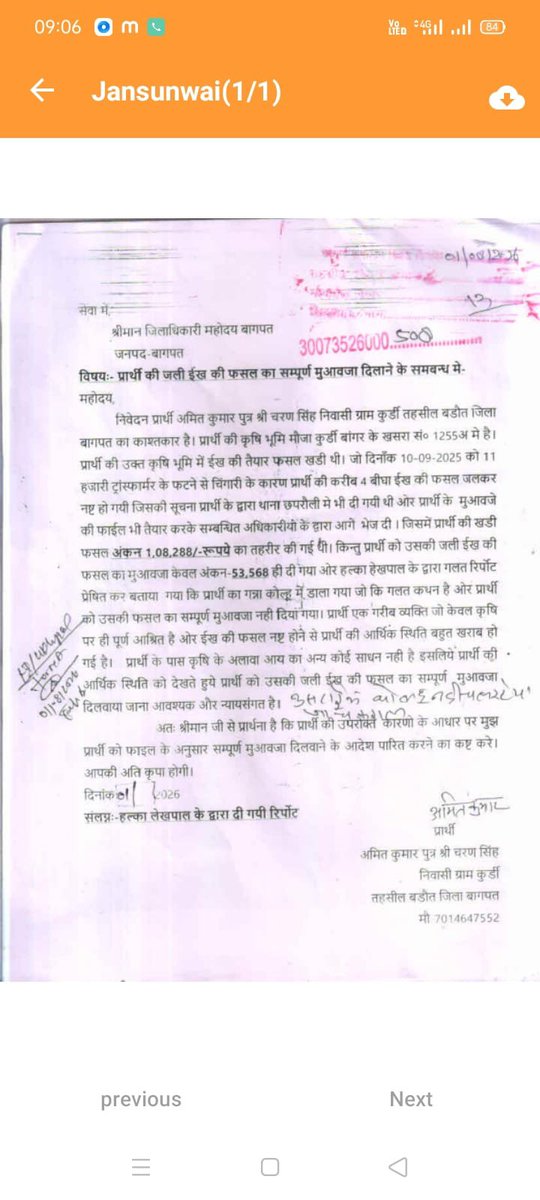 09:06
m
Vo LTED 4G 84
Jansunwai(1/1)
सेवा में,
श्रीमान जिलाधिकारी महोदय बागपत
30073526000 500
जनपद-बागपत
विषयः- प्रार्थी की जली ईख की फसल का सम्पूर्ण मुआवजा दिलाने के समबन्ध मे-
महोदय,
निवेदन प्रार्थी अमित कुमार पुत्र श्री चरण सिंह निवासी ग्राम कुर्डी तहसील बडौत जिला
बागपत का काश्तकार है। प्रार्थी की कृषि भूमि मौजा कुर्डी बांगर के खसरा सं० 1255अ मे है।
प्रार्थी की उक्त कृषि भूमि में ईख की तैयार फसल खडी थी। जो दिनॉक 10-09-2025 को 11
हजारी ट्रांसफार्मर के फटने से चिंगारी के कारण प्रार्थी की करीब 4 बीघा ईख की फसल जलकर
नष्ट हो गयी जिसकी सूचना प्रार्थी के द्वारा थाना छपरौली मे भी दी गयी थी ओर प्रार्थी के मुआवजे
की फाईल भी तैयार करके सम्बन्धित अधिकारीयो के द्वारा आगे भेज दी। जिसमें प्रार्थी की खडी
फसल अंकन 1,08,288/-रूपये का तहरीर की गई थी। किन्तु प्रार्थी को उसकी जली ईख की
फसल का मुआवजा केवल अंकन-53,568 ही दी गया ओर हल्का हेखपाल के द्वारा गलत रिर्पोट
प्रेषित कर बताया गया कि प्रार्थी का गन्ना कोल्हू में डाला गया जो कि गलत कथन है ओर प्रार्थी
को उसकी फसल का सम्पूर्ण मुआवजा नही दिया गया। प्रार्थी एक गरीब व्यक्ति जो केवल कृषि
पर ही पूर्ण आश्रित है ओर ईख की फसल नष्ट होने से प्रार्थी की आर्थिक स्थिति बहुत खराब हो
गई है। प्रार्थी के पास कृषि के अलावा आय का अन्य कोई साधन नही है इसलिये प्रार्थी की
आर्थिक स्थिति को देखते हुये प्रार्थी को उसकी जली ईख की फसल का सम्पूर्ण मुआवजा
दिलवाया जाना आवश्यक और न्यायसंगत है।
अतः श्रीमान जी से प्रार्थना है कि प्रार्थी को उपरोक्त कारणो के आधार पर मुझ
प्रार्थी को फाइल के अनुसार सम्पूर्ण मुआवजा दिलवाने के आदेश पारित करने का कष्ट करे।
आपकी अति कृपा होगी।
दिनांक 01/ /2026
अमित कुमार
संलग्नः-हल्का लेखपाल के द्वारा दी गयी रिर्पोट
प्रार्थी
अमित कुमार पुत्र श्री चरण सिंह
निवासी ग्राम कुर्डी
तहसील बडौत जिला बागपत
मौ 7014647552
previous Next